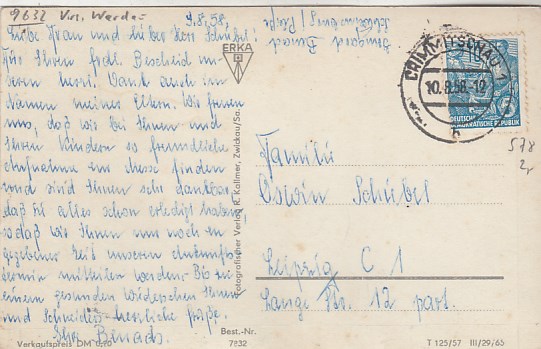 9632 Krs. Werdau
9.8.58.
Liebe Frau und lieber Herr Schubel!
Für Ihren frdl. Bescheid un-
seren herzl. Dank auch im
Namen meiner Eltern. Wir freuen
uns, daß wir bei Ihnen und
Ihren Kindern so freundliche
Aufnahme zur Messe finden
und sind Ihnen sehr dankbar,
daß Sie alles schon erledigt haben,
sodaß wir Ihnen nur noch zu
gegebener Zeit unseren Ankunfts-
termin mitteilen werden. Bis zu
einem gesunden Wiedersehen Ihnen
und Schneiders herzliche Grüße.
Ihre
ERKA
Fotografischer Verlag R. Kallmer, Zwickau/Sa.
CRIMMITSCHAU 1
10.8.58.-12
b
DEUTSCHE
DEMOKRATISCHE REPUBLIK
578
Familie
Oswin Schubel
Leipzig C 1
Lange Str. 12 part.
Verkaufspreis DM 0,10
Best.-Nr.
7832
T 125/57 III/29/65